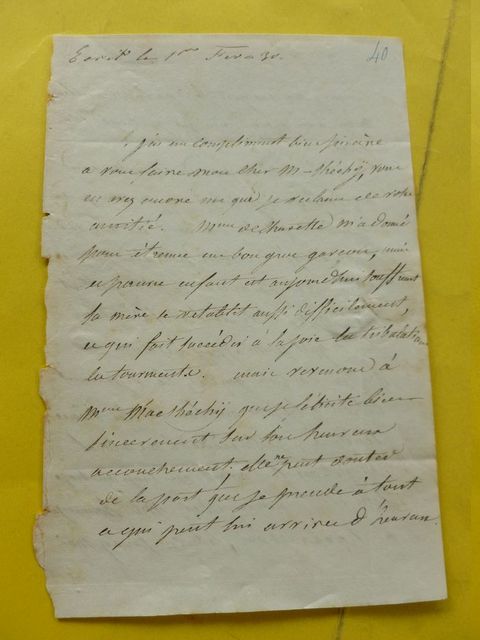 Ecrit le 1er Fevr 30.
40
J'ai un compliment bien sincère
a vous faire mon cher Mr Shéchÿ, vous
en avez encore un que je reclame de votre
amitié. Mme de Charette m'a donné
pour étrenne un bon gros garcon, mais
ce pauvre enfant est aujourdhui souffrant
sa mère se retablit aussi difficilement,
ce qui fait succéder à la joie les tribulations
les tourments. mais revenons à
Mme Mac Shéchÿ que je félicite bien
sincerement sur son heureux
accouchement. elle ne peut douter
de la part que je prends à tout
ce qui peut lui arriver d'heureux.